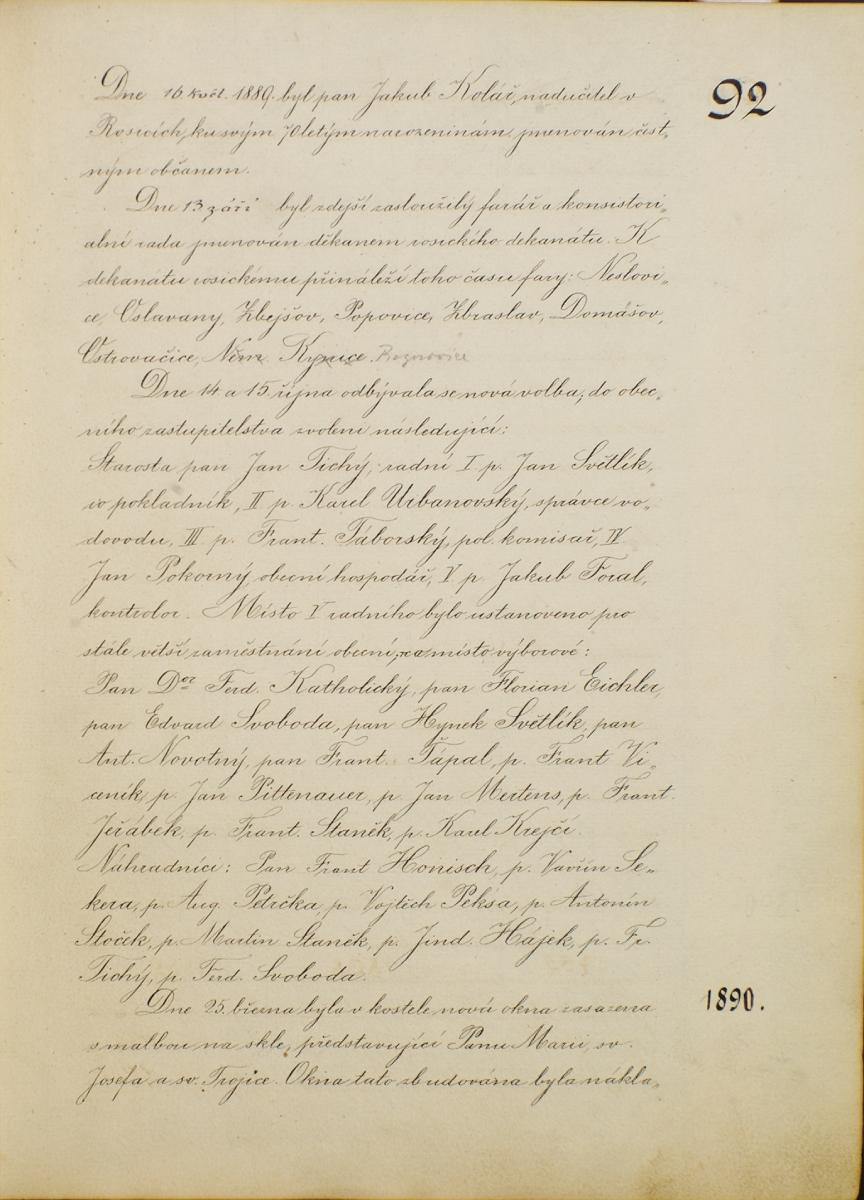 92
Dne 16 květ. 1889 byl pan Jakub Kolář, nadučitel v
Rosicích, ku svým 70letým narozeninám jmenován čest„
ným občanem.
Dne 13 září byl zdejší zasloužilý farář a konsistori„
alní rada jmenován děkanem rosického dekanátu. K
dekanátu rosickému přináleží toho času fary: Neslovi„
ce, Oslavany, Zbejšov, Popovice, Zbraslav, Domášov,
Ostrovačice, Něm. Kynice.
Dne 14 a 15 října odbývala se nová volba, do obec„
ního zastupitelstva zvoleni následující:
Starosta pan Jan Tichý, radní I p. Jan Světlík,
co pokladník, II p. Karel Urbanovský, správce vo„
dovodu, III p. Frant. Táborský, pol. komisař, IV
Jan Pokorný, obecní hospodář, V p. Jakub Foral,
kontrolor. Místo V radního bylo ustanoveno pro
stále větší zaměstnání obecní, místo výborové:
Pan Dor Ferd. Katholický, pan Florian Eichler,
pan Edvard Svoboda, pan Hynek Světlík, pan
Ant. Novotný, pan Frant. Ťápal, p. Frant Vi„
ceník, p. Jan Pittenauer, p. Jan Mertens, p. Frant.
Jeřábek, p. Frant. Staněk, p. Karel Krejčí.
Náhradníci: Pan Frant Honisch, p. Vavřín Se„
kera, p. Aug. Petrčka, p. Vojtěch Pekša, p. Antonín
Stoček, p. Martin Staněk, p. Jind. Hájek, p. Fr.
Tichý, p. Ferd. Svoboda.
Dne 25. března byla v kostele nová okna zasazena
1890.
s malbou na skle, představující Panu Marii, sv.
Josefa a sv. Trojice. Okna tato zbudována byla nákla„